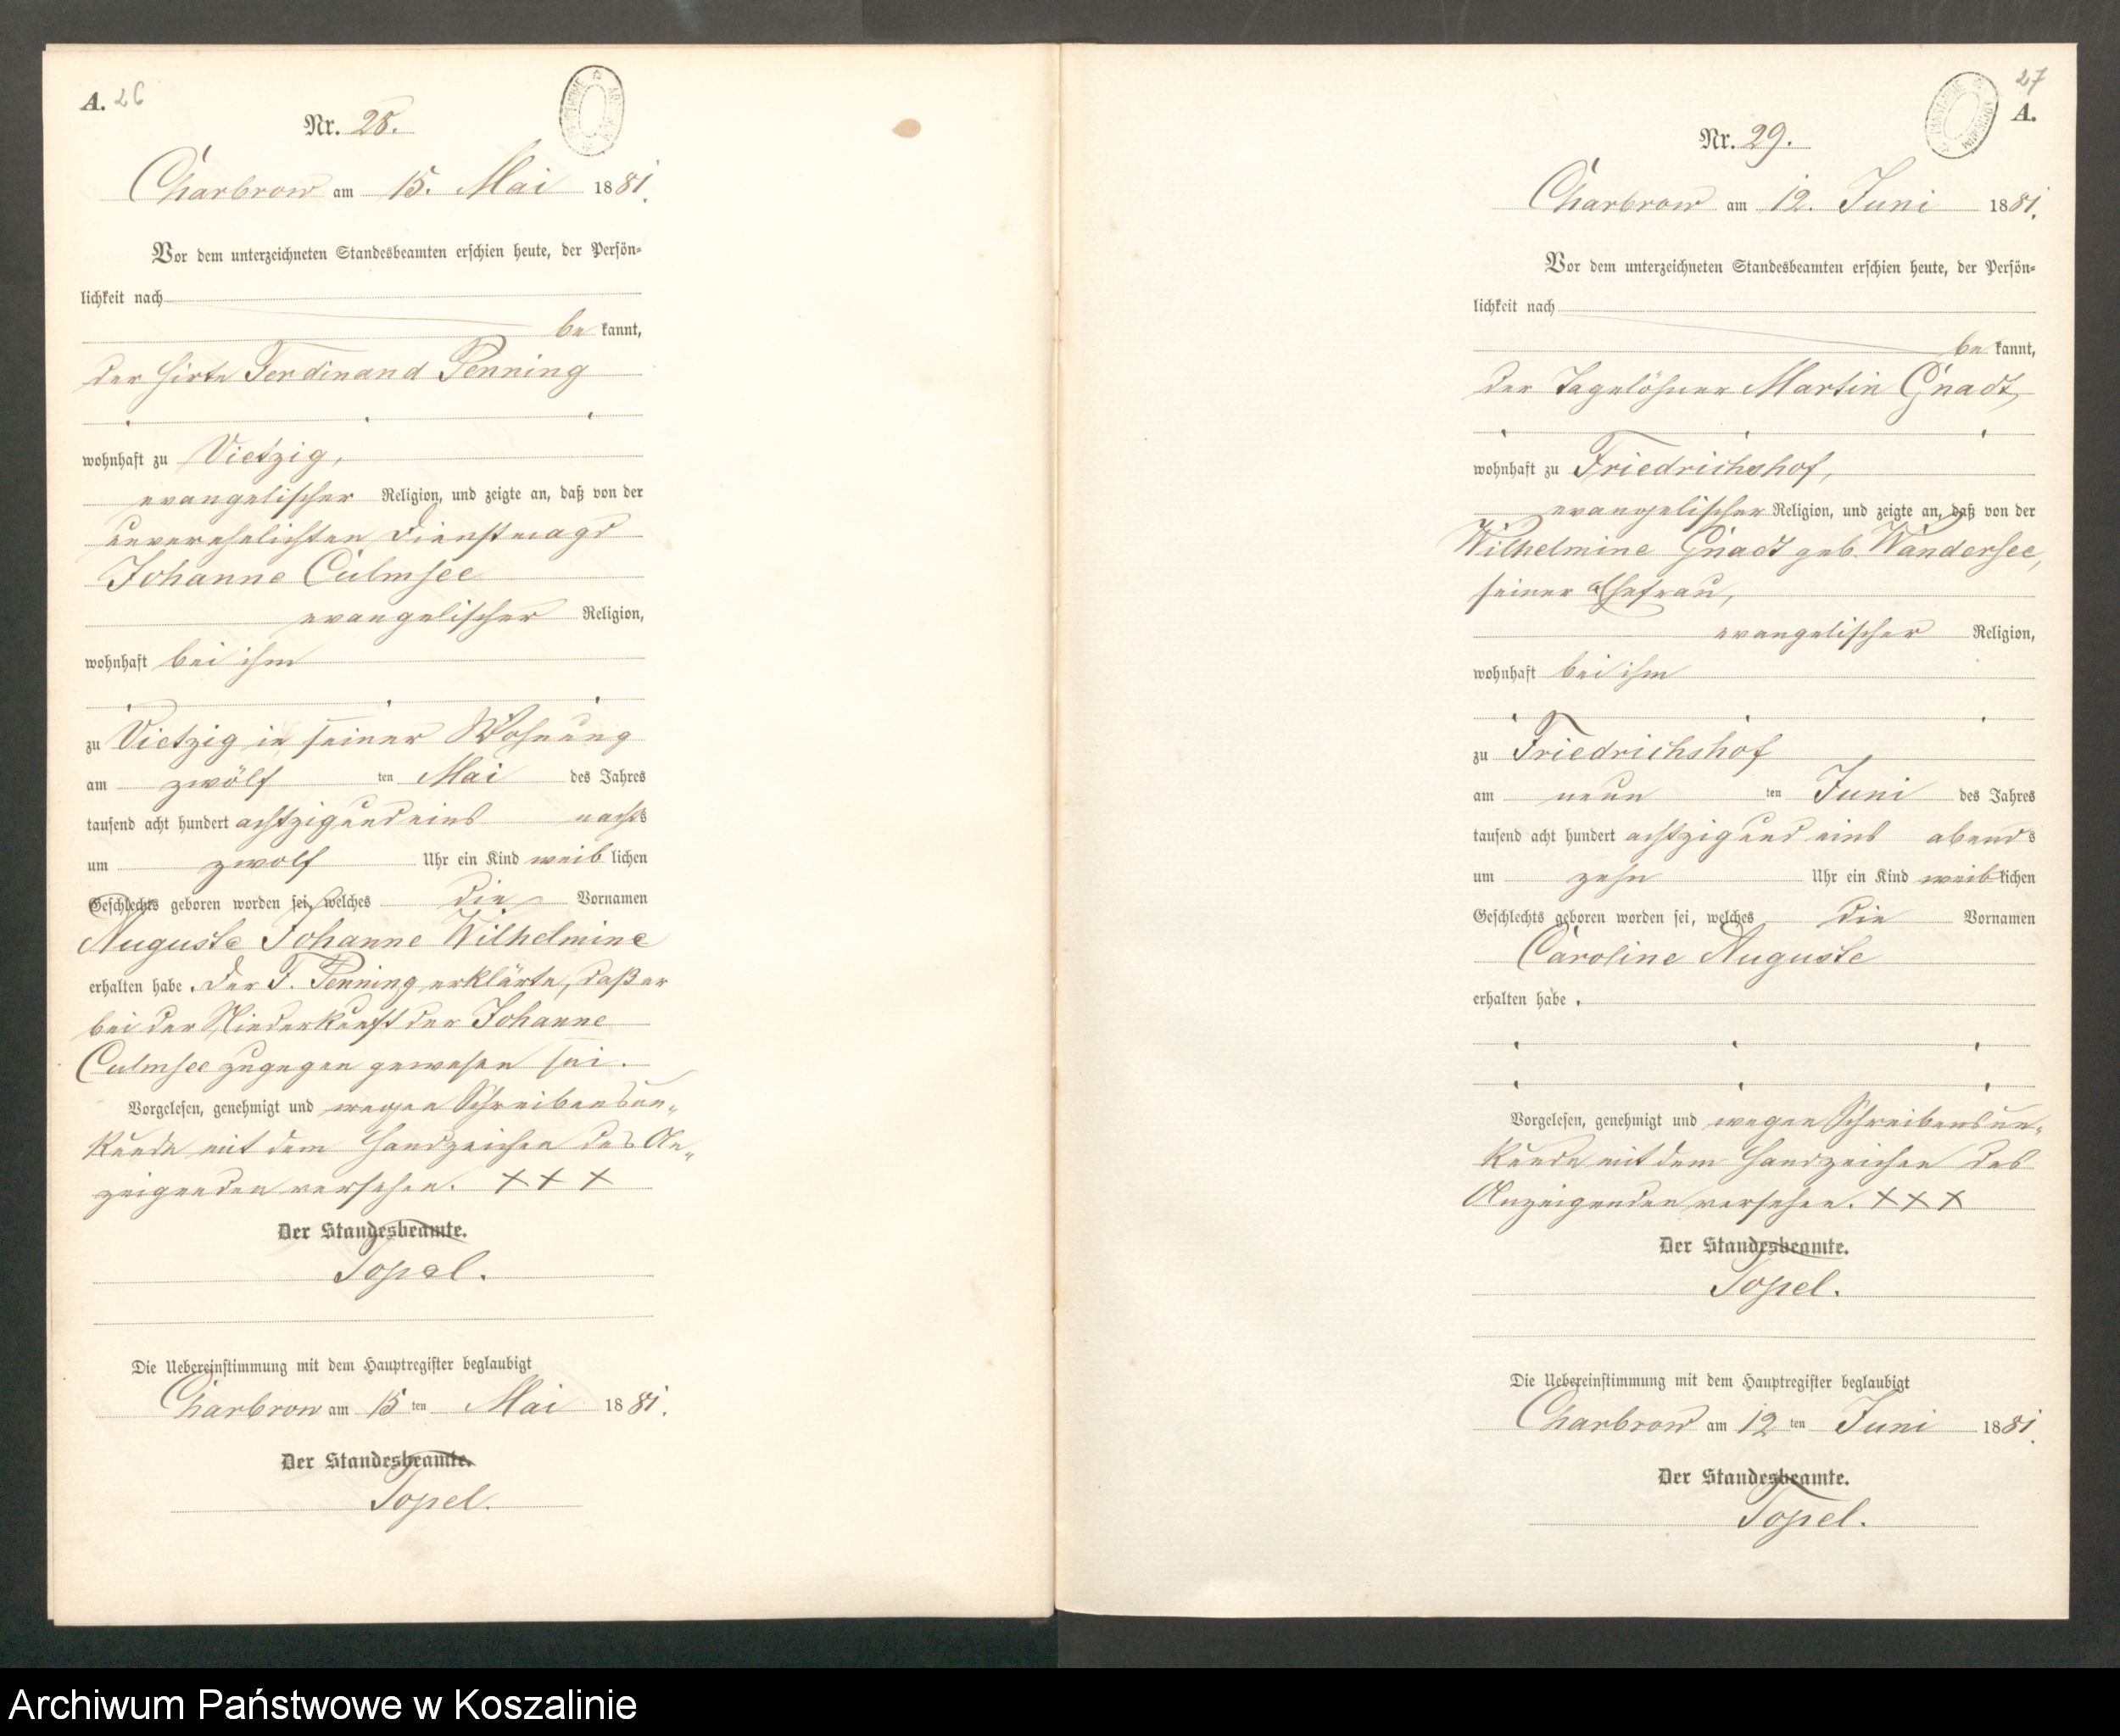 A. 26
Nr. 28.
Charbrow am 15. Mai 1881.
Vor dem unterzeichneten Standesbeamten erschien heute, der Persön-
lichkeit nach
be kannt,
der Hirte Ferdinand Penning
wohnhaft zu Vietzig,
evangelischer Religion, und zeigte an, daß von der
unverehelichten Dienstmagd
Johanne Culmsee
evangelischer Religion,
wohnhaft bei ihm
zu Vietzig in seiner Wohnung
am zwölf ten Mai des Jahres
tausend acht hundert achtzig und eins nachts
um zwölf Uhr ein Kind weib lichen
Geschlechts geboren worden sei, welches die Vornamen
Auguste Johanne Wilhelmine
erhalten habe. Der F. Penning erklärte, daß er
bei der Niederkunft der Johanne
Culmsee zugegen gewesen sei.
Vorgelesen, genehmigt und wegen Schreibensun-
kunde mit dem Handzeichen des An-
zeigenden versehen. + + +
Der Standesbeamte.
Topel.
Die Uebereinstimmung mit dem Hauptregister beglaubigt
Charbrow am 15 ten Mai 1881.
Der Standesbeamte.
Topel.
27
A.
Nr. 29.
Charbrow am 12. Juni 1881.
Vor dem unterzeichneten Standesbeamten erschien heute, der Persön-
lichkeit nach
be kannt,
der Tagelöhner Martin Gnadt,
wohnhaft zu Friedrichshof,
evangelischer Religion, und zeigte an, daß von der
Wilhelmine Gnadt geb. Wandersee,
seiner Ehefrau,
evangelischer Religion,
wohnhaft bei ihm
zu Friedrichshof
am neun ten Juni des Jahres
tausend acht hundert achtzig und eins abends
um zehn Uhr ein Kind weiblichen
Geschlechts geboren worden sei, welches die Vornamen
Caroline Auguste
erhalten habe.
Vorgelesen, genehmigt und wegen Schreibensun-
kunde mit dem Handzeichen des
Anzeigenden versehen. + + +
Der Standesbeamte.
Topel.
Die Uebereinstimmung mit dem Hauptregister beglaubigt
Charbrow am 12 ten Juni 1881.
Der Standesbeamte.
Topel.
Archiwum Państwowe w Koszalinie